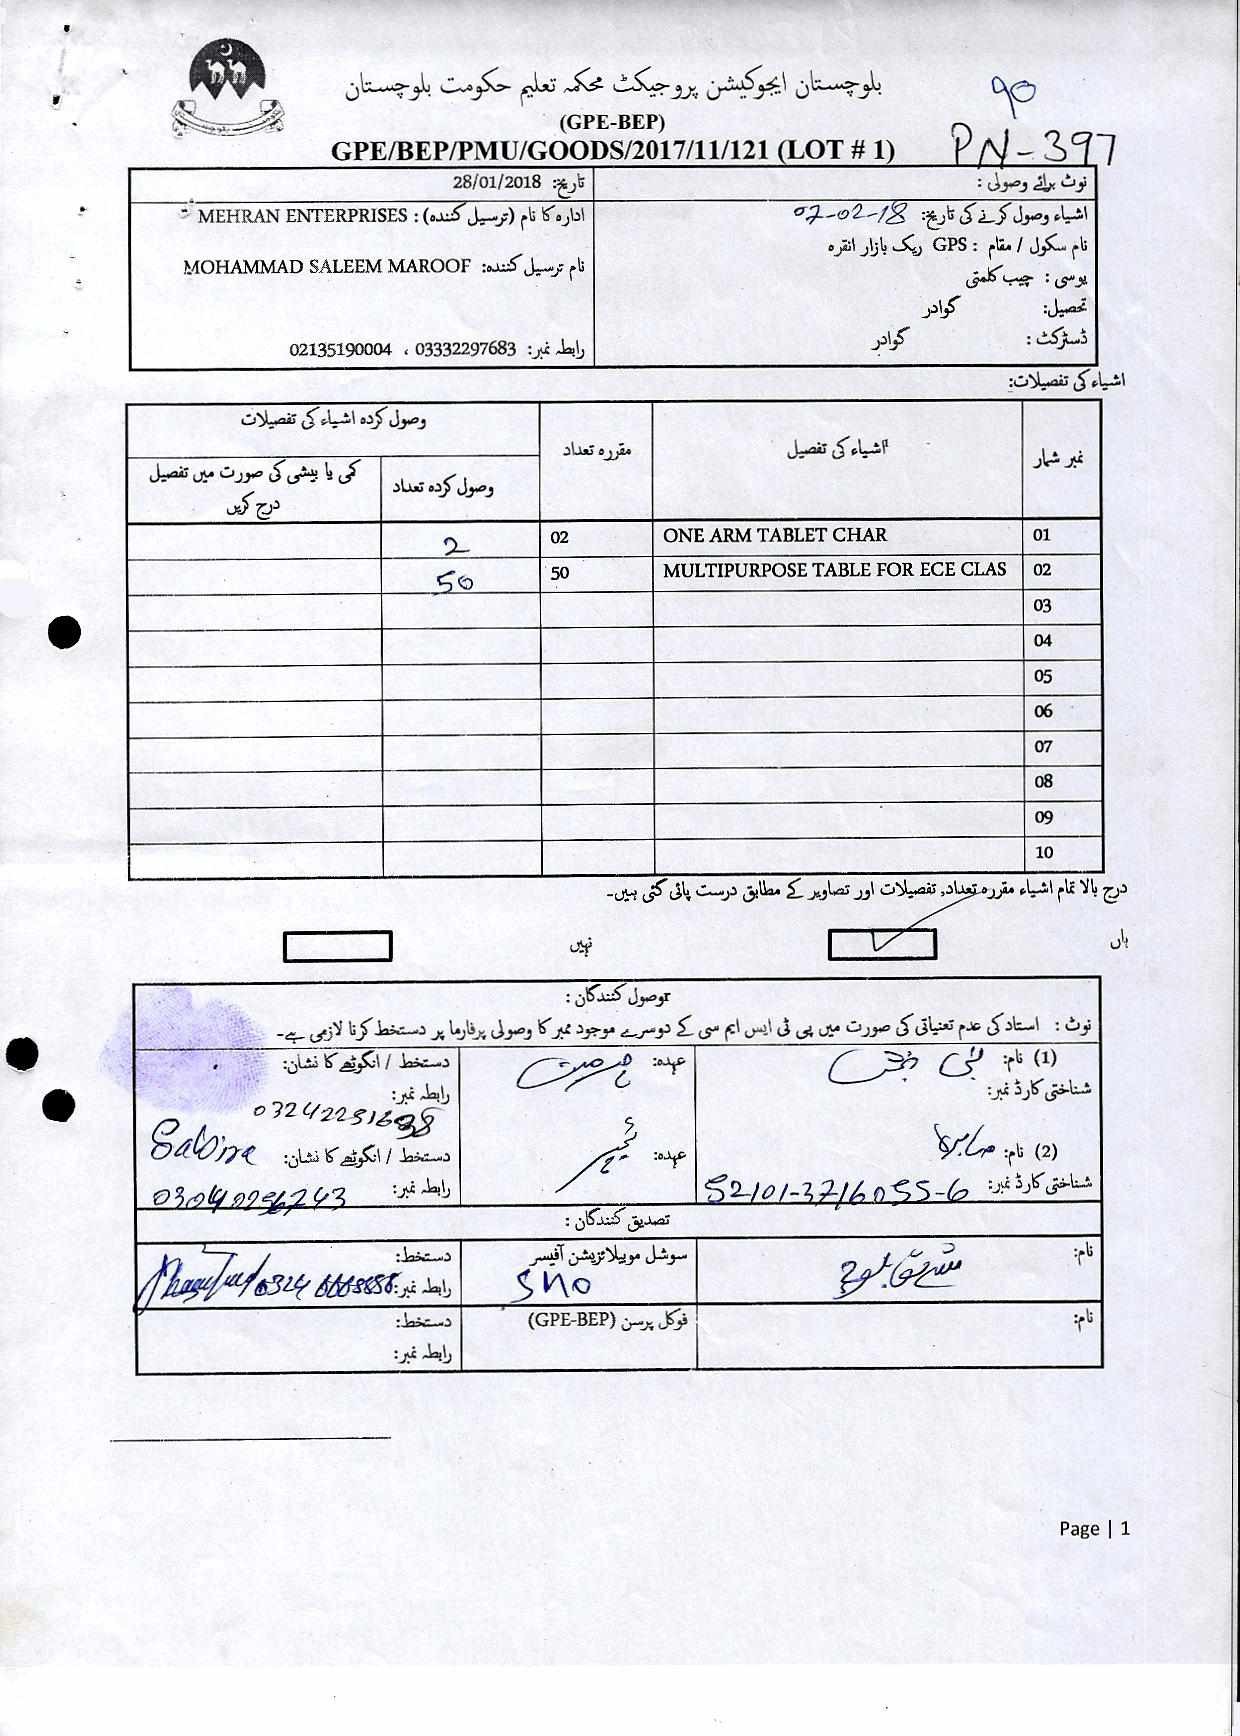 بلوچستان ایجوکیشن پروجیکٹ محکمہ تعلیم حکومت بلوچستان
90
(GPE-BEP)
GPE/BEP/PMU/GOODS/2017/11/121 (LOT # 1)
PN-397
نوٹ برائے وصولی :
تاریخ: 28/01/2018
اشیاء وصول کرنے کی تاریخ: 07-02-18
ادارہ کا نام (ترسیل کنندہ) : MEHRAN ENTERPRISES
نام سکول / مقام : GPS ریک بازار انقرہ
نام ترسیل کنندہ: MOHAMMAD SALEEM MAROOF
یوسی : چیب کلمتی
تحصیل: گوادر
ڈسٹرکٹ : گوادر
رابطہ نمبر: 03332297683 ، 02135190004
اشیاء کی تفصیلات:
نمبر شمار اشیاء کی تفصیل مقررہ تعداد وصول کردہ اشیاء کی تفصیلات
وصول کردہ تعداد کمی یا بیشی کی صورت میں تفصیل درج کریں
01 ONE ARM TABLET CHAR 02 2
02 MULTIPURPOSE TABLE FOR ECE CLAS 50 50
03
04
05
06
07
08
09
10
درج بالا تمام اشیاء مقررہ تعداد, تفصیلات اور تصاویر کے مطابق درست پائی گئی ہیں۔
ہاں نہیں
وصول کنندگان :
نوٹ : استاد کی عدم تعنیاتی کی صورت میں پی ٹی ایس ایم سی کے دوسرے موجود ممبر کا وصولی پرفارما پر دستخط کرنا لازمی ہے۔
(1) نام: عہدہ: دستخط / انگوٹھے کا نشان:
شناختی کارڈ نمبر: رابطہ نمبر:
(2) نام: صابرہ عہدہ: ٹیچر دستخط / انگوٹھے کا نشان: Sabira
شناختی کارڈ نمبر: 52101-3716055-6 رابطہ نمبر:
تصدیق کنندگان :
نام: سوشل موبیلائزیشن آفیسر دستخط:
SMO رابطہ نمبر:
نام: فوکل پرسن (GPE-BEP) دستخط:
رابطہ نمبر:
Page | 1